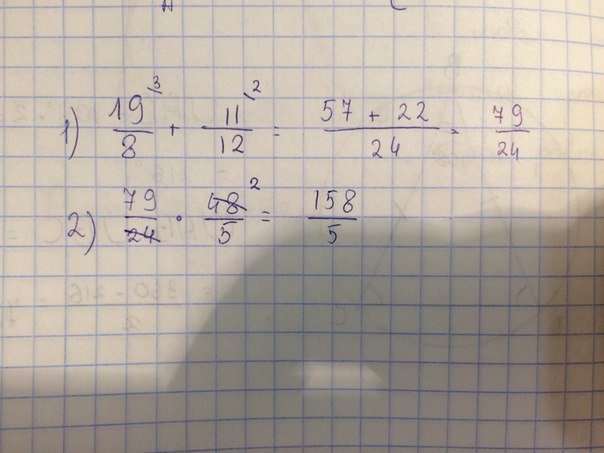 1) 19/8 ³ + 11/12 ² = 57 + 22/24 = 79/24
2) 79/24 · 48/5 ² = 158/5